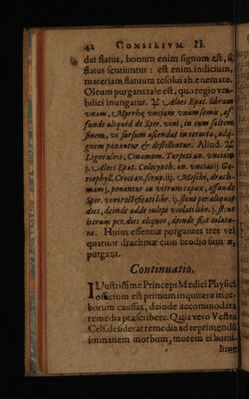 42 CONSILIVM II.
dat flatus, bonum enim signum est, si
flatus sentiuntur: est enim indicium,
materiam flatuum resolui ab enemato.
Oleum purgans tale est, quo regio vm-
bilici inungatur. ℞ Aloes Epat. libram
vnam, Myrrhæ vnciam vnam semis, af-
funde aliquid de Sper. vini, in eum saltem
finem, vt sursum ascendat in retorta, adij-
gnem ponantur & destillentur. Aliud. ℞
Ligni aloes, Cinamom. Turpeti an. vnciam
j. Aloes Epat. Colocynth. an. vncias ij. Ga-
riophyll. Croci an. scrup. iij. Moschi, drach-
mam j, ponantur in vitrum capax, affunde
Sper. ventrellificati libr. ij. stent per aliquot
dies, deinde adde iulep. violati libr. j. stent
iterum per dies aliquot, deinde fiat colatu-
ra. Huius essentiæ purgantes tres vel
quatuor drachmæ cum brodio sum
purgant.
Continuatio.
ILlustrissime Princeps Medici Physici
officium est primum inquirere mor-
borum caussas, deinde accommodata
remedia præscribere. Quia vero Vestra
Cels. desiderat remedia ad reprimendū
immanem morbum, motem ei humi-
lime